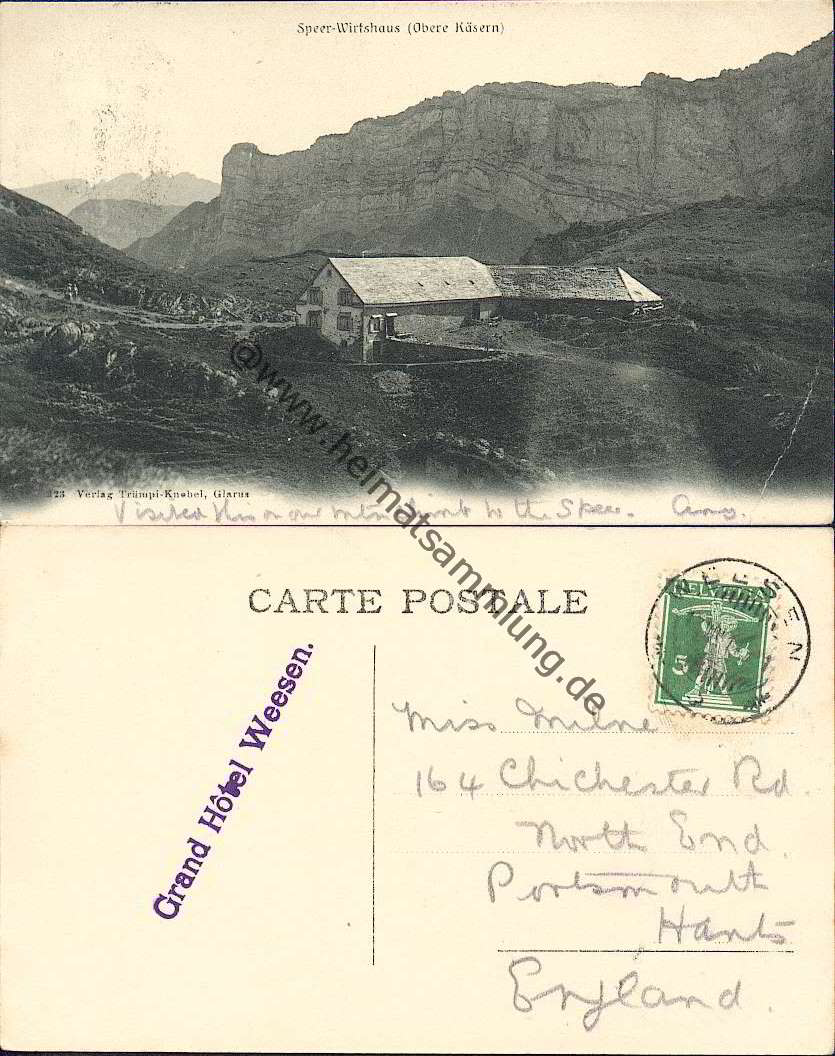 Speer-Wirtshaus (Obere Käsern)
223 Verlag Trümpi-Knobel, Glarus
Visited this on our climb to the Speer. Amy.
@www.heimatsammlung.de
CARTE POSTALE
WEESEN
HELVETIA
5
Grand Hôtel Weesen.
Miss Milne
164 Chichester Rd.
North End.
Portsmouth
Hants
England.